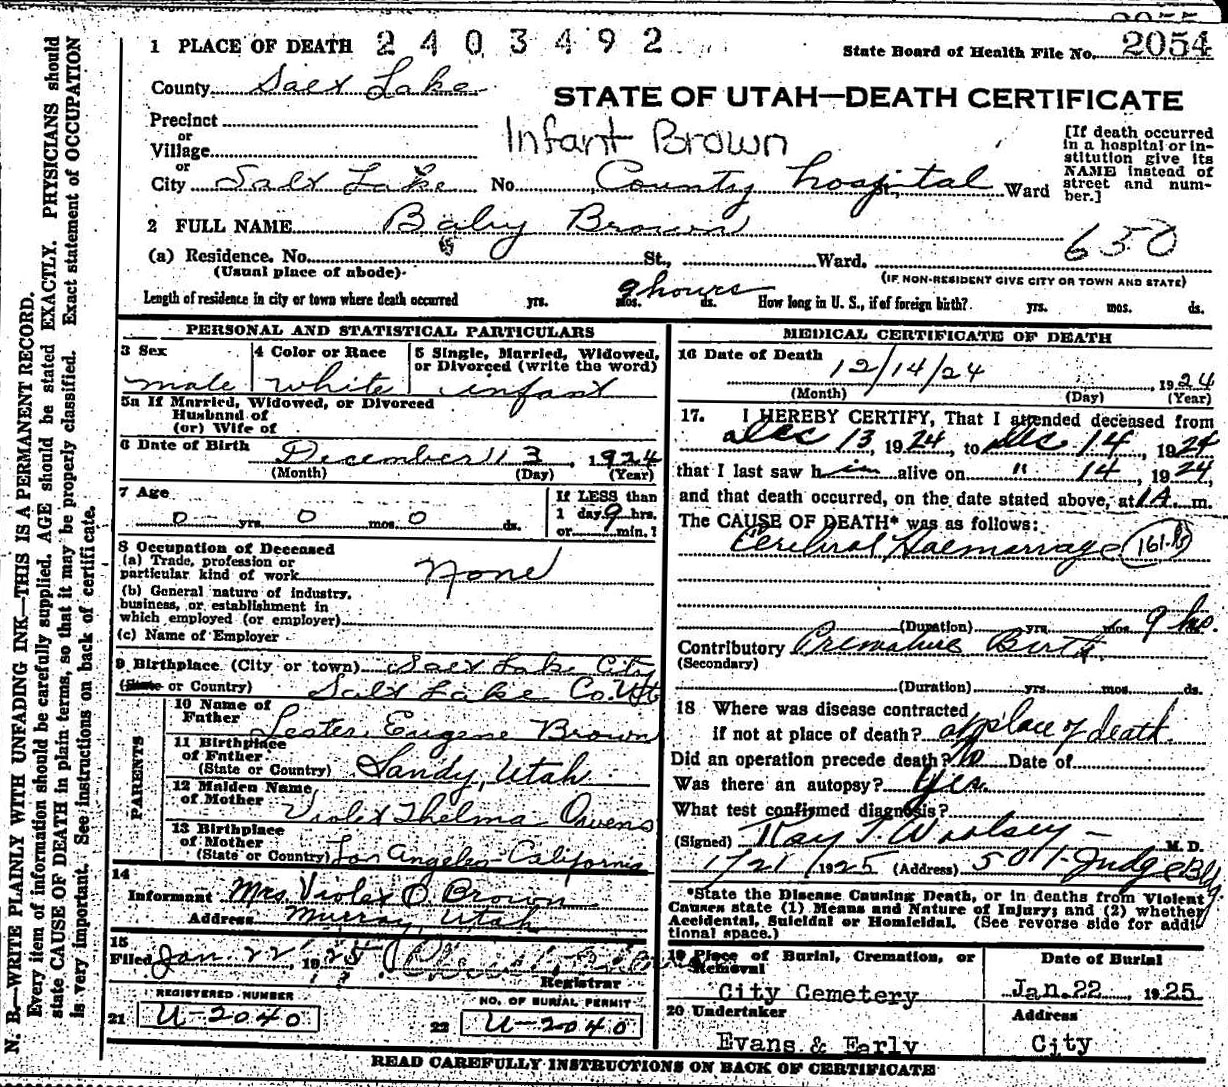 1 PLACE OF DEATH 2403492
State Board of Health File No. 2054
County Salt Lake
STATE OF UTAH—DEATH CERTIFICATE
Precinct
or
Village
Infant Brown
or
City Salt Lake No. County hospital St., Ward
[If death occurred
in a hospital or in-
stitution give its
NAME instead of
street and num-
ber.]
2 FULL NAME Baby Brown
650
(a) Residence. No. St., Ward.
(Usual place of abode)
(IF NON-RESIDENT GIVE CITY OR TOWN AND STATE)
Length of residence in city or town where death occurred yrs. mos. 9 hours ds. How long in U. S., if of foreign birth? yrs. mos. ds.
PERSONAL AND STATISTICAL PARTICULARS
3 Sex
male
4 Color or Race
white
5 Single, Married, Widowed,
or Divorced (write the word)
infant
5a If Married, Widowed, or Divorced
Husband of
(or) Wife of
6 Date of Birth December 13, 1924
(Month) (Day) (Year)
7 Age
0 yrs. 0 mos. 0 ds.
If LESS than
1 day 9 hrs.
or min.?
8 Occupation of Deceased
(a) Trade, profession or
particular kind of work None
(b) General nature of industry,
business, or establishment in
which employed (or employer)
(c) Name of Employer
9 Birthplace (City or town) Salt Lake City
(State or Country) Salt Lake Co. Ut
PARENTS
10 Name of
Father Lester Eugene Brown
11 Birthplace
of Father
(State or Country) Sandy, Utah
12 Maiden Name
of Mother Violet Thelma Owens
13 Birthplace
of Mother
(State or Country) Los Angeles California
14
Informant Mrs. Violet O. Brown
Address Murray, Utah
15
Filed Jan. 22, 1925
Registrar
REGISTERED NUMBER
21 U-2040
NO. OF BURIAL PERMIT
22 U-2040
MEDICAL CERTIFICATE OF DEATH
16 Date of Death
12/14/24, 1924
(Month) (Day) (Year)
17. I HEREBY CERTIFY, That I attended deceased from
Dec 13, 1924, to Dec 14, 1924
that I last saw him alive on " 14, 1924,
and that death occurred, on the date stated above, at 1 A. m.
The CAUSE OF DEATH* was as follows:
Cerebral Haemarrage
(Duration) yrs. mos. 9 hrs.
Contributory Premature Birth
(Secondary)
(Duration) yrs. mos. ds.
18 Where was disease contracted
if not at place of death? at place of death
Did an operation precede death? No Date of
Was there an autopsy? Yes.
What test confirmed diagnosis?
(Signed) Ray T Woolsey M. D.
1/21/1925 (Address) 501-Judge Bldg
*State the Disease Causing Death, or in deaths from Violent
Causes state (1) Means and Nature of Injury; and (2) whether
Accidental, Suicidal or Homicidal. (See reverse side for addi-
tional space.)
19 Place of Burial, Cremation, or
Removal
City Cemetery
Date of Burial
Jan. 22, 1925
20 Undertaker
Evans & Early
Address
City
READ CAREFULLY INSTRUCTIONS ON BACK OF CERTIFICATE
N. B.—WRITE PLAINLY WITH UNFADING INK—THIS IS A PERMANENT RECORD.
Every item of information should be carefully supplied. AGE should be stated EXACTLY. PHYSICIANS should
state CAUSE OF DEATH in plain terms, so that it may be properly classified. Exact statement of OCCUPATION
is very important. See instructions on back of certificate.